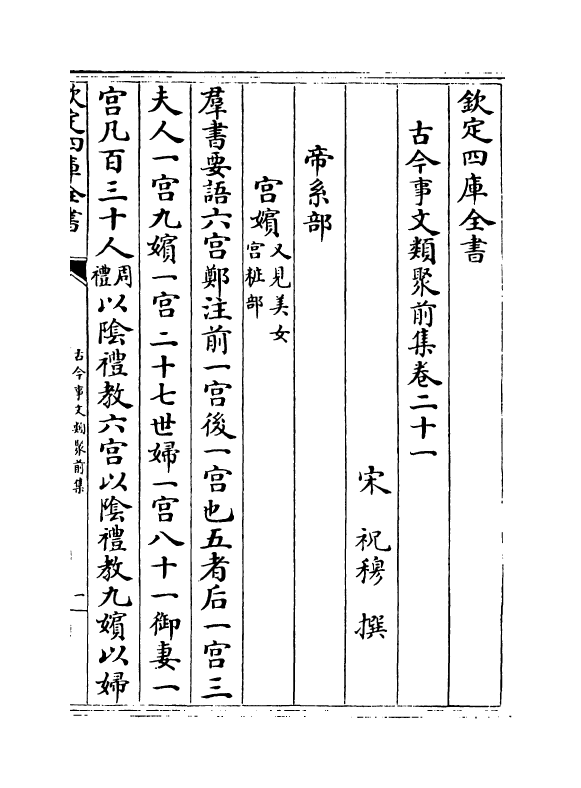 欽定四庫全書
古今事文類聚前集卷二十一
宋 祝穆 撰
帝系部
宫嬪又見美女宫粧部
羣書要語六宫鄭注前一宫後一宫也五者后一宫三
夫人一宫九嬪一宫二十七世婦一宫八十一御妻一
宫凡百三十人周禮以陰禮教六宫以陰禮教九嬪以婦
欽定四庫全書
古今事文類聚前集
一